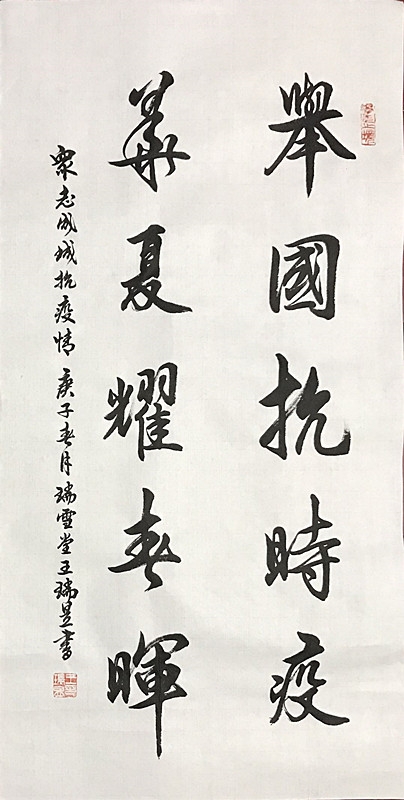 舉國抗時疫
華夏耀春暉
眾志成城抗疫情 庚子春月瑞雪堂王瑞昱書